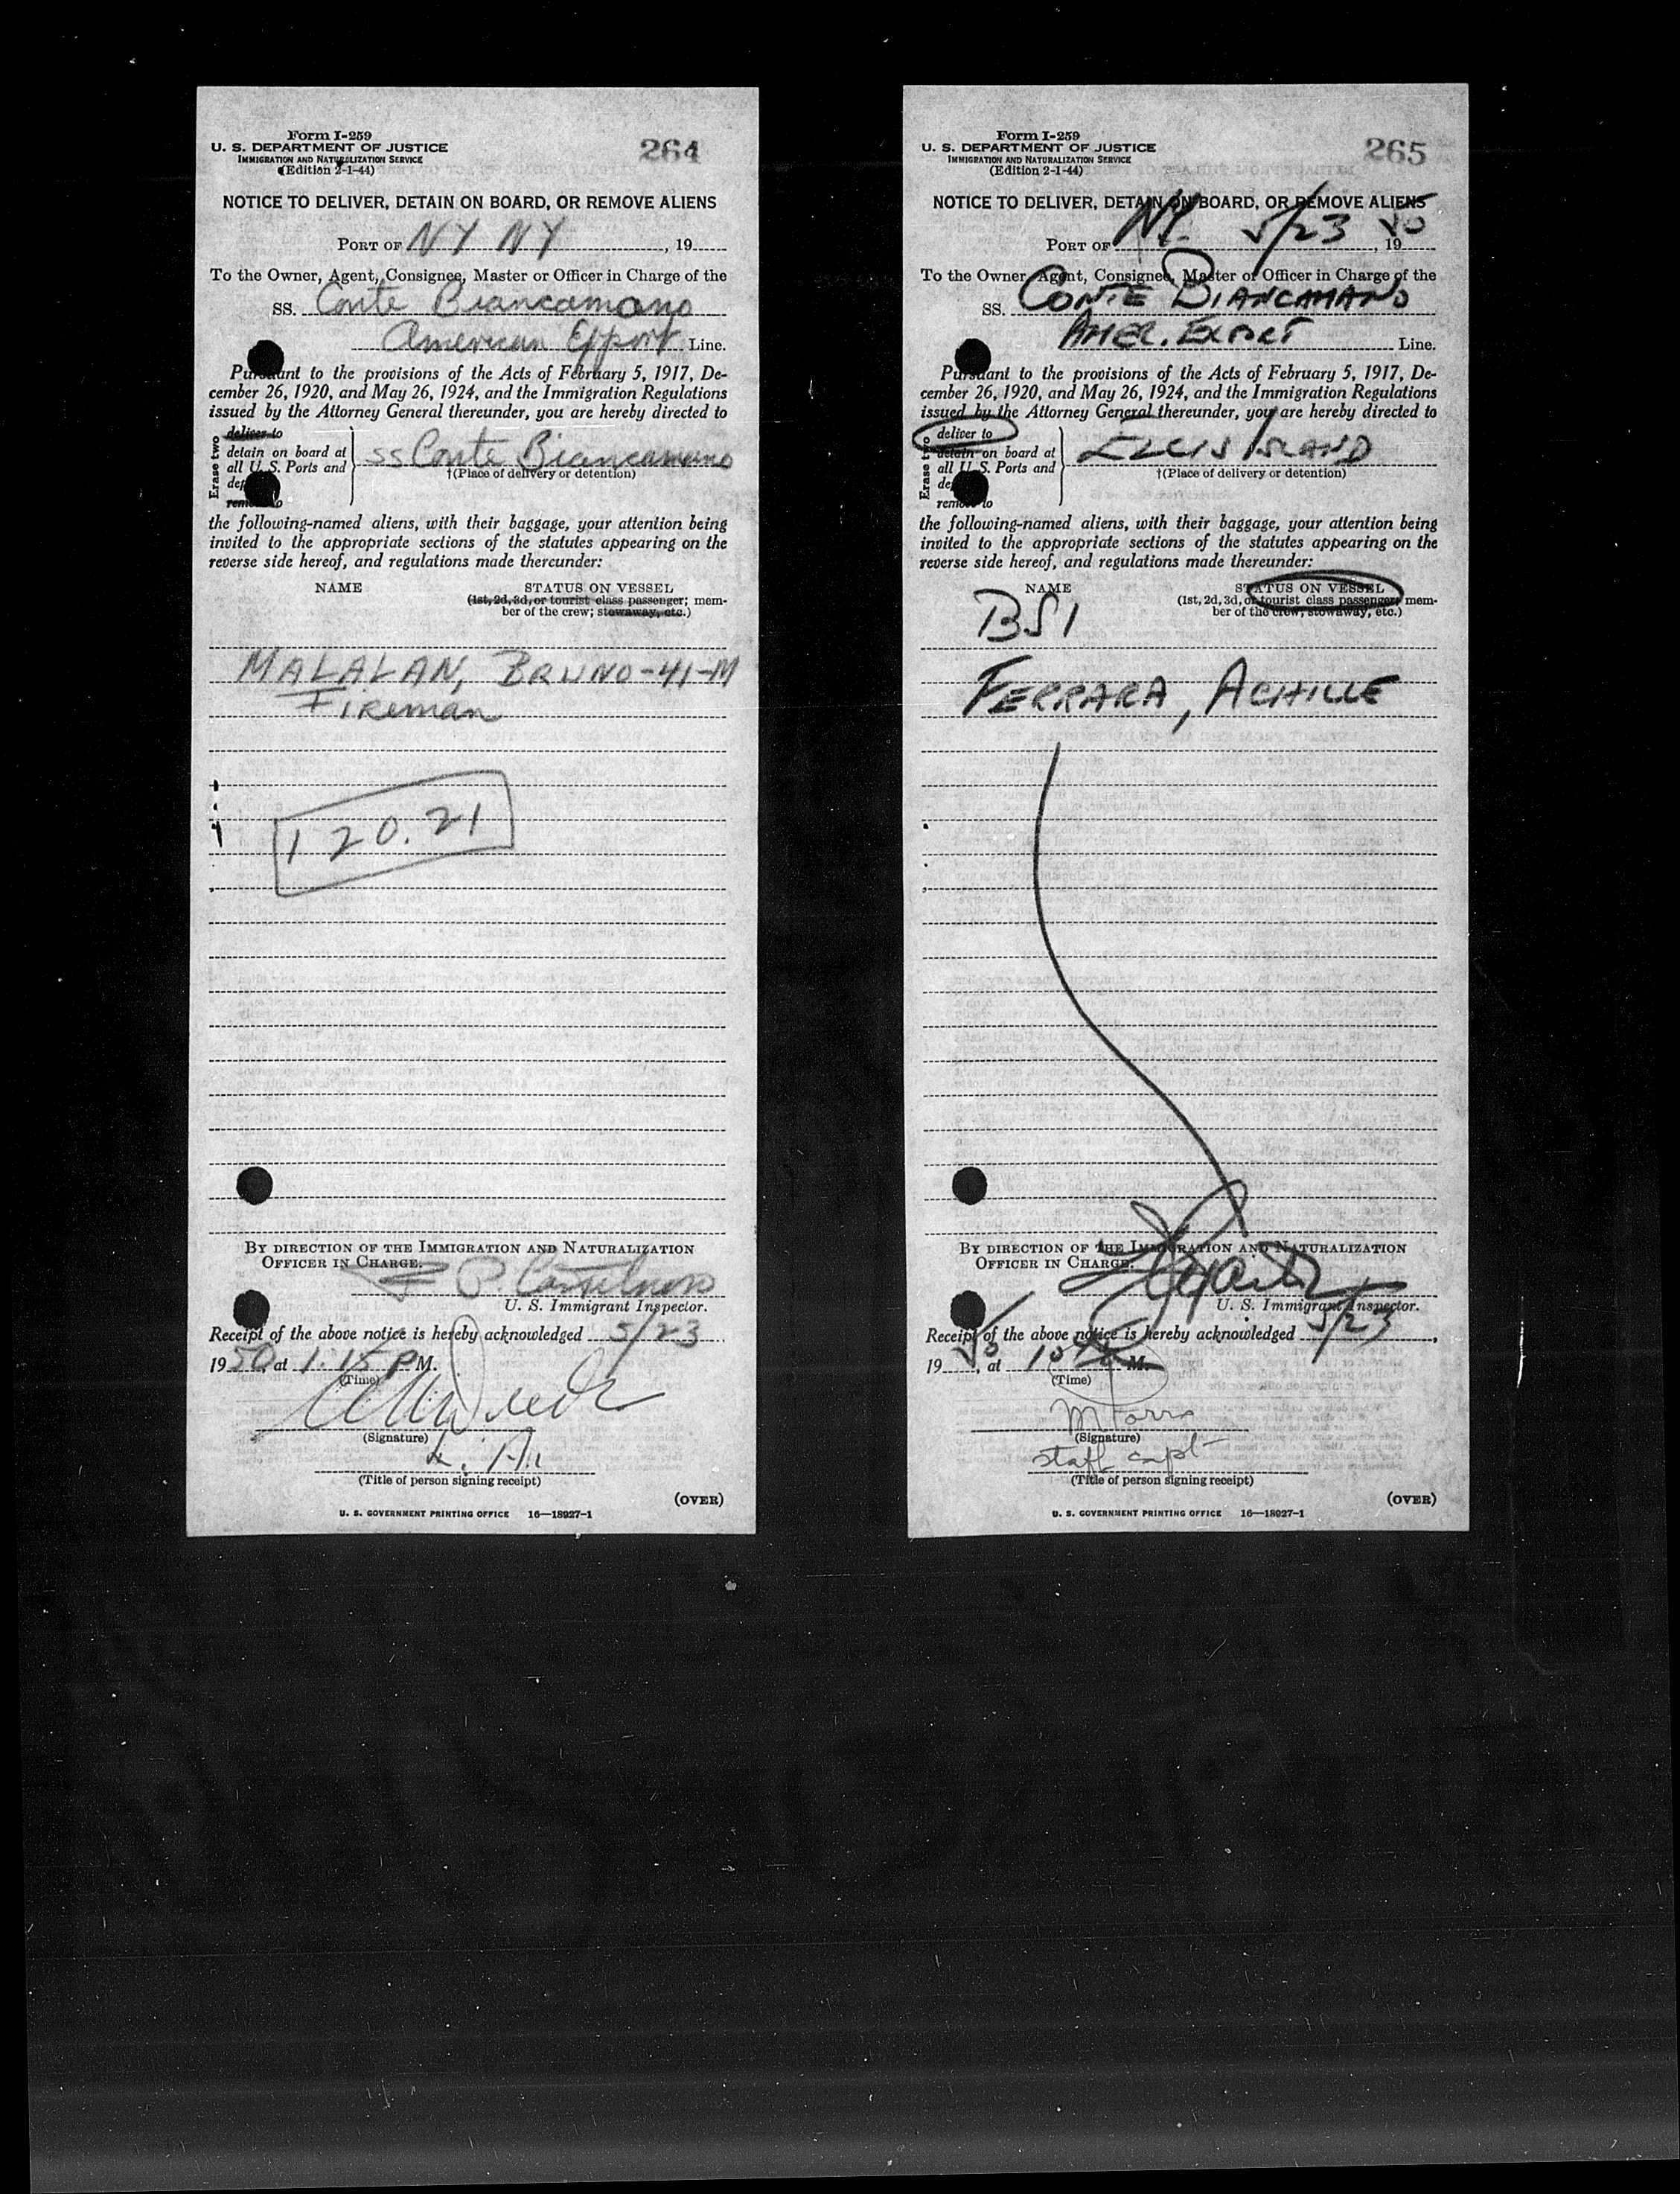 Form I-259
U. S. DEPARTMENT OF JUSTICE
IMMIGRATION AND NATURALIZATION SERVICE
(Edition 2-1-44)
264
NOTICE TO DELIVER, DETAIN ON BOARD, OR REMOVE ALIENS
PORT OF NY NY, 19
To the Owner, Agent, Consignee, Master or Officer in Charge of the
SS. Conte Biancamano
American Export Line.
Pursuant to the provisions of the Acts of February 5, 1917, De-
cember 26, 1920, and May 26, 1924, and the Immigration Regulations
issued by the Attorney General thereunder, you are hereby directed to
Erase two
deliver to
detain on board at
all U. S. Ports and
remove to
SS Conte Biancamano
†(Place of delivery or detention)
the following-named aliens, with their baggage, your attention being
invited to the appropriate sections of the statutes appearing on the
reverse side hereof, and regulations made thereunder:
NAME STATUS ON VESSEL
(1st, 2d, 3d, or tourist class passenger; mem-
ber of the crew; stowaway, etc.)
MALALAN, BRUNO-41-M
Fireman
120.21
BY DIRECTION OF THE IMMIGRATION AND NATURALIZATION
OFFICER IN CHARGE.
U. S. Immigrant Inspector.
Receipt of the above notice is hereby acknowledged 5/23
1950, at 1.15 P M.
(Time)
(Signature)
(Title of person signing receipt)
(OVER)
U. S. GOVERNMENT PRINTING OFFICE 16—18927-1
Form I-259
U. S. DEPARTMENT OF JUSTICE
IMMIGRATION AND NATURALIZATION SERVICE
(Edition 2-1-44)
265
NOTICE TO DELIVER, DETAIN ON BOARD, OR REMOVE ALIENS
PORT OF NY. 5/23, 19 50
To the Owner, Agent, Consignee, Master or Officer in Charge of the
SS. CONTE BIANCAMANO
AMER. EXPORT Line.
Pursuant to the provisions of the Acts of February 5, 1917, De-
cember 26, 1920, and May 26, 1924, and the Immigration Regulations
issued by the Attorney General thereunder, you are hereby directed to
Erase two
deliver to
detain on board at
all U. S. Ports and
remove to
ELLIS ISLAND
†(Place of delivery or detention)
the following-named aliens, with their baggage, your attention being
invited to the appropriate sections of the statutes appearing on the
reverse side hereof, and regulations made thereunder:
NAME STATUS ON VESSEL
(1st, 2d, 3d, or tourist class passenger; mem-
ber of the crew; stowaway, etc.)
BSI
FERRARA, ACHILLE
BY DIRECTION OF THE IMMIGRATION AND NATURALIZATION
OFFICER IN CHARGE.
U. S. Immigrant Inspector.
Receipt of the above notice is hereby acknowledged 5/23,
19 50, at 10 M.
(Time)
(Signature)
staff capt
(Title of person signing receipt)
(OVER)
U. S. GOVERNMENT PRINTING OFFICE 16—18927-1